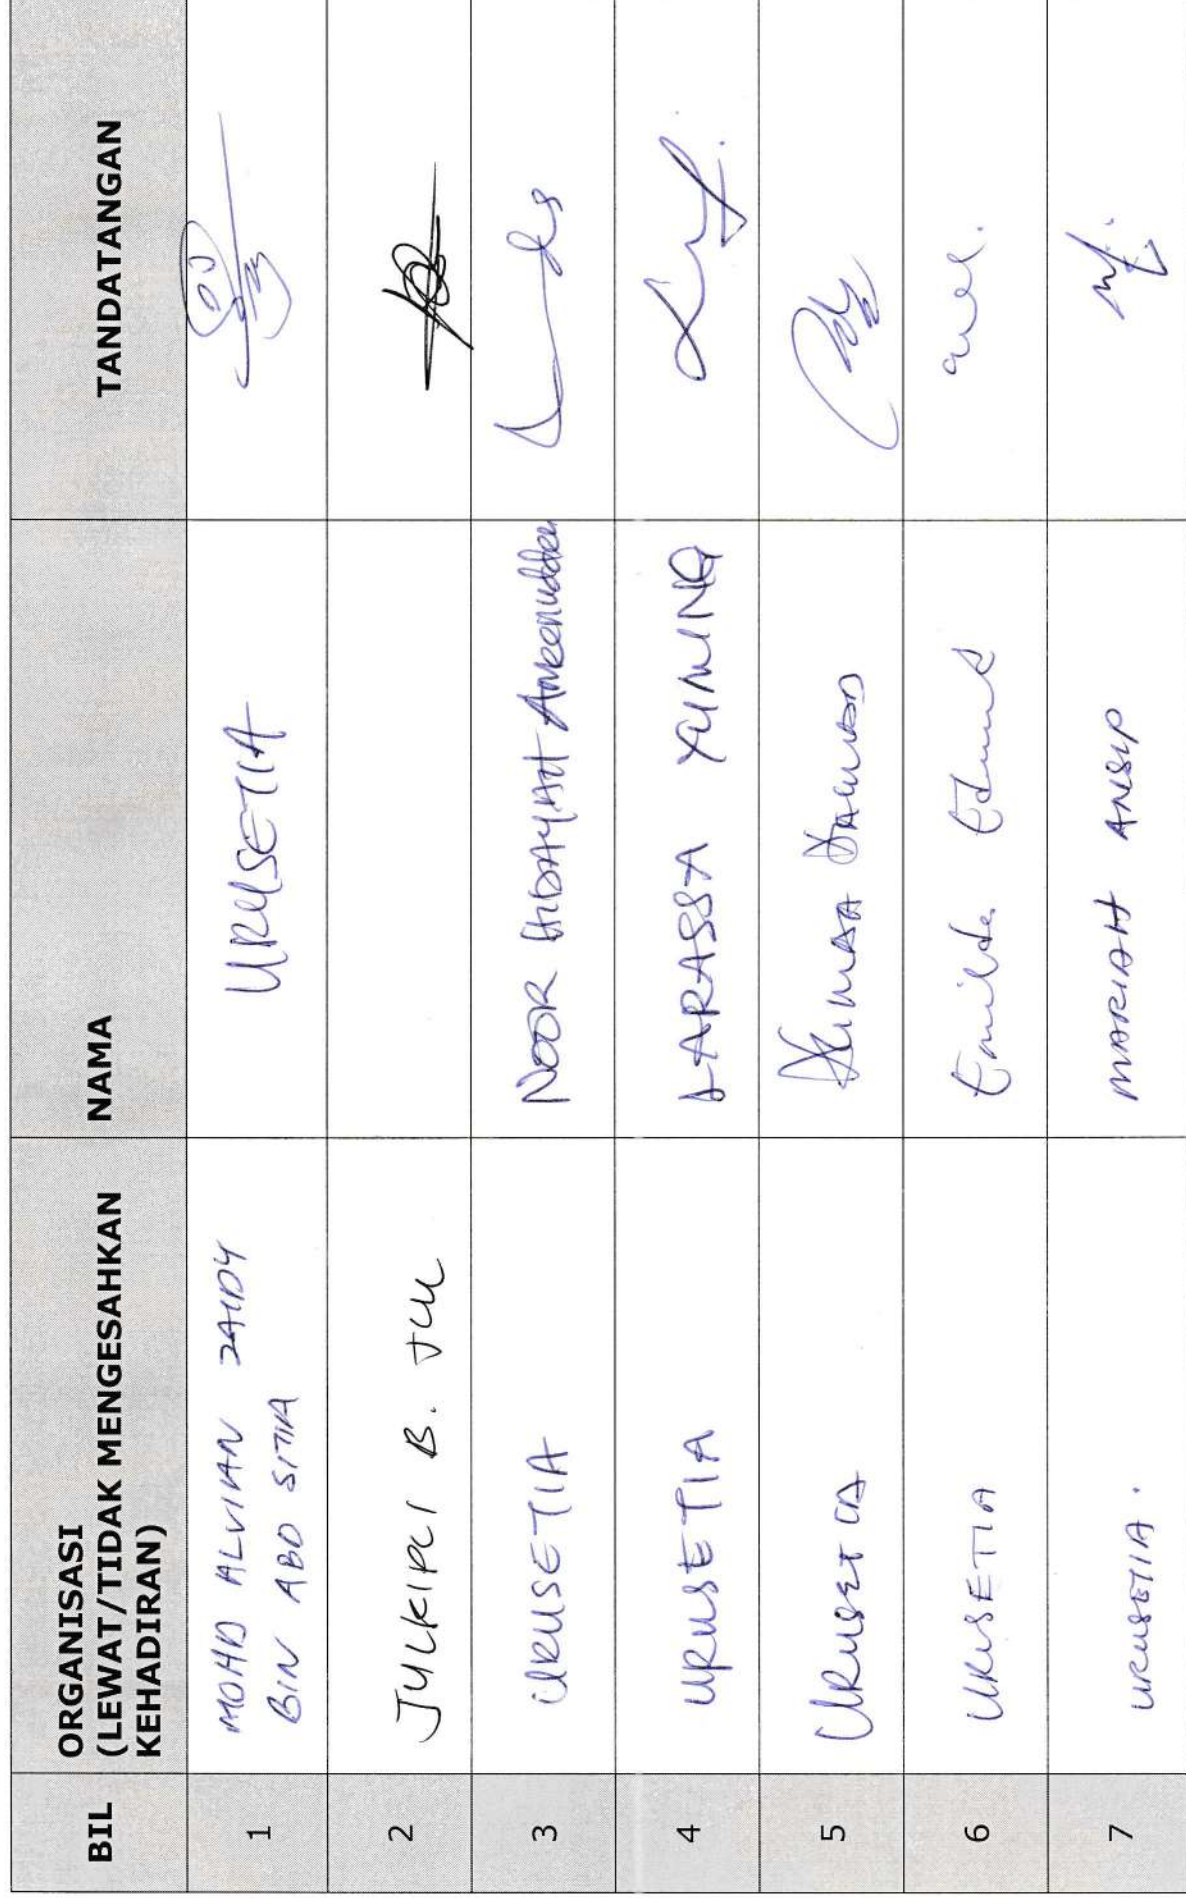 BIL ORGANISASI (LEWAT/TIDAK MENGESAHKAN KEHADIRAN) NAMA TANDATANGAN
1 MOHD ALVIAN ZAIDY BIN ABD SITIA URUSETIA
2 JULKIPLI B. JUL
3 URUSETIA NOOR HIDAYAH Ameenuddin
4 URUSETIA LARASSA YUMING
5 URUSETIA
6 URUSETIA Emilda Edmund
7 URUSETIA. MARIAH ANSIP